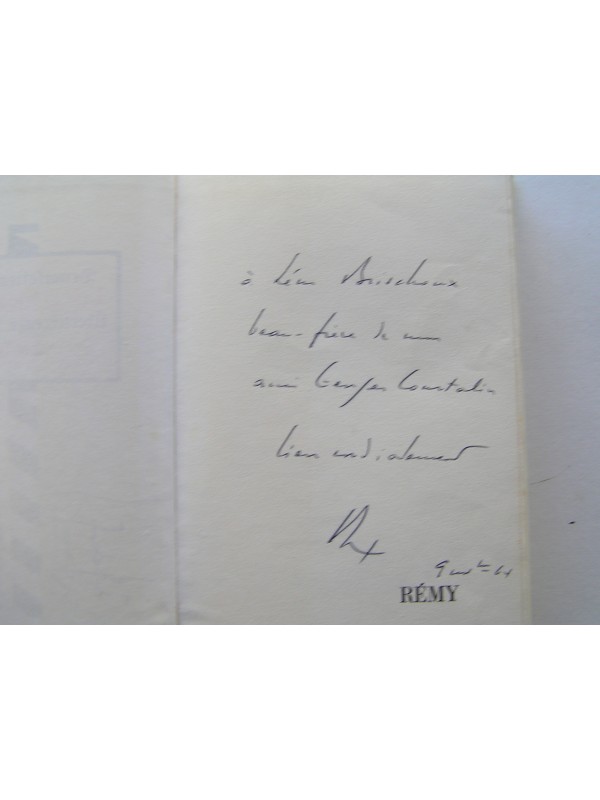 à Léon Brischoux
beau-frère de mon
ami Georges Constantin
bien cordialement
RÉMY